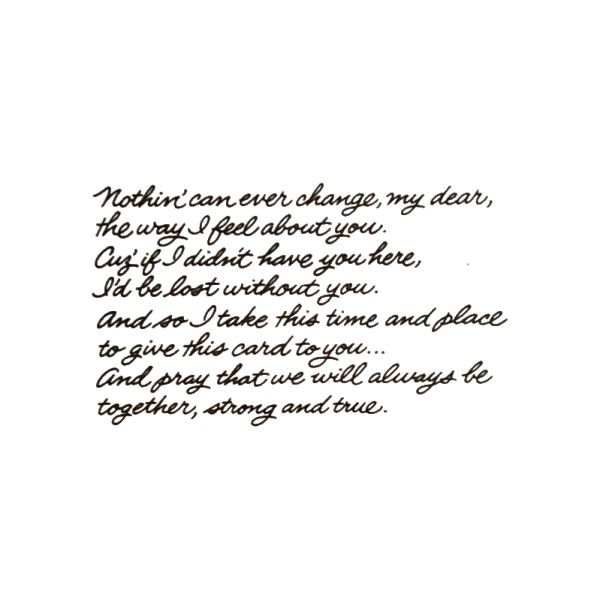 Nothin' can ever change, my dear,
the way I feel about you.
Cuz' if I didn't have you here,
I'd be lost without you.
And so I take this time and place
to give this card to you...
And pray that we will always be
together, strong and true.